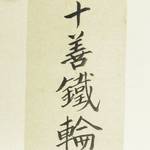 十善鐵輪